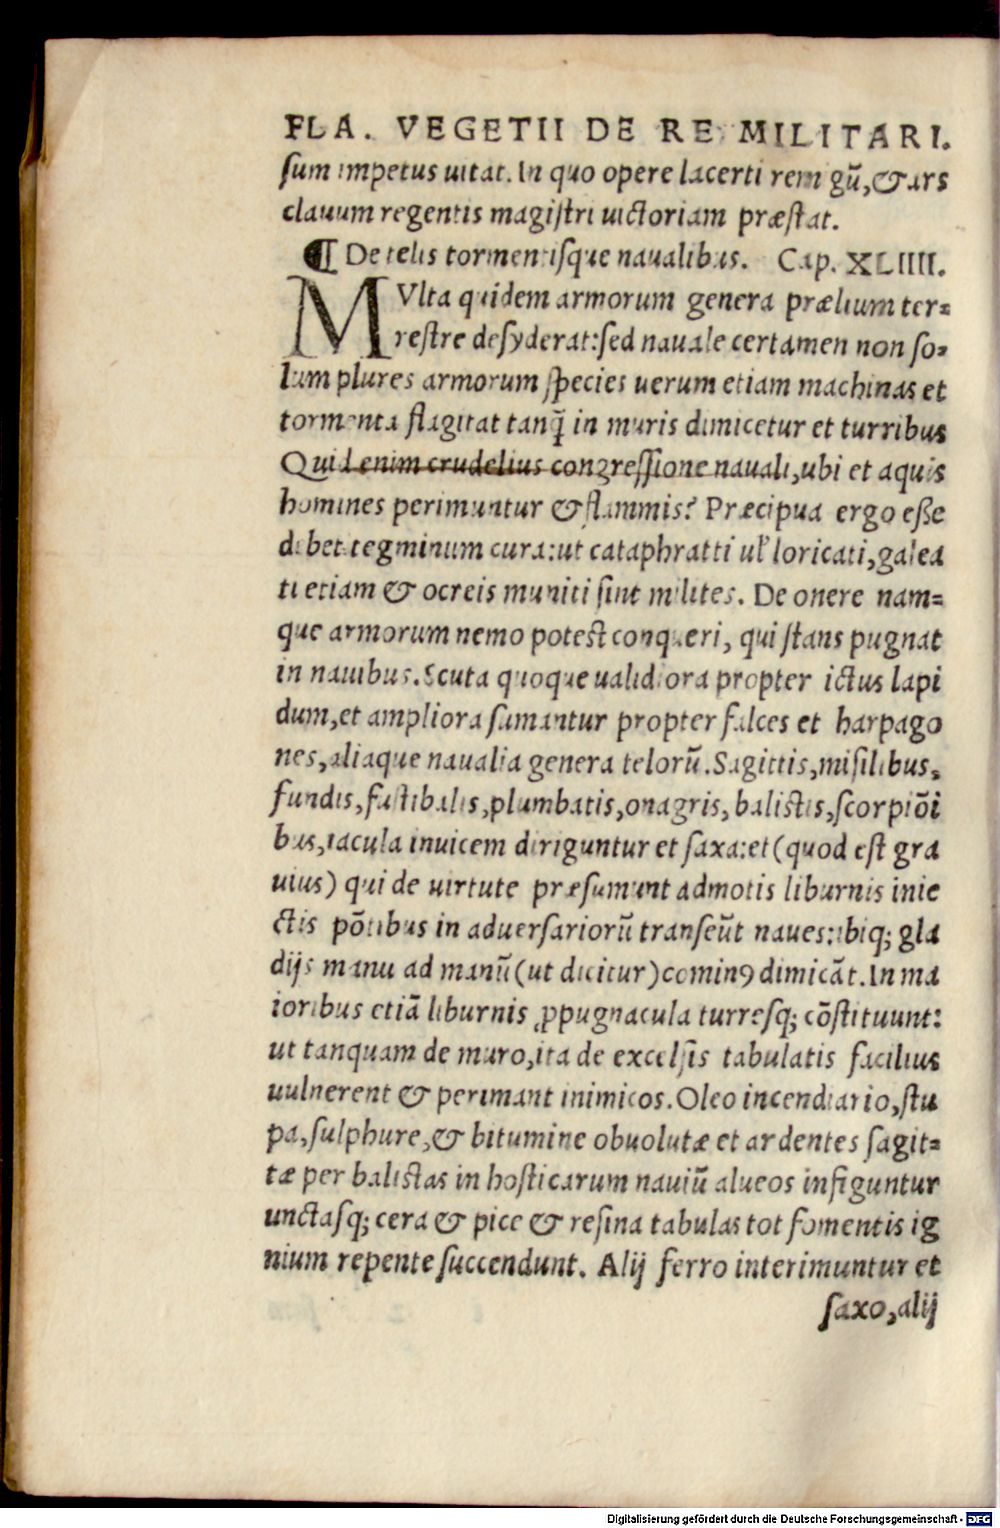 FLA. VEGETII DE RE MILITARI.
ſum impetus uitat. In quo opere lacerti remigũ, & ars
clauum regentis magiſtri uictoriam præſtat.
¶ De telis tormentiſque naualibus. Cap. XLIIII.
MVlta quidem armorum genera prælium ter=
reſtre deſyderat: ſed nauale certamen non ſo=
lum plures armorum ſpecies uerum etiam machinas et
tormenta flagitat tanq̃ in muris dimicetur et turribus
Quid enim crudelius congreſſione nauali, ubi et aquis
homines perimuntur & flammis? Præcipua ergo eſſe
debet tegminum cura: ut cataphratti ul' loricati, galea
ti etiam & ocreis muniti ſint milites. De onere nam=
que armorum nemo poteſt conqueri, qui ſtans pugnat
in nauibus. Scuta quoque ualidiora propter ictus lapi
dum, et ampliora ſumantur propter falces et harpago
nes, aliaque naualia genera telorũ. Sagittis, miſilibus,
fundis, fuſtibalis, plumbatis, onagris, baliſtis, ſcorpiõi
bus, iacula inuicem diriguntur et ſaxa: et (quod eſt gra
uius) qui de uirtute præſumunt admotis liburnis inie
ctis põtibus in aduerſariorũ tranſeũt naues: ibiq; gla
dijs manu ad manũ (ut dicitur) cominꝰ dimicãt. In ma
ioribus etiã liburnis ꝓpugnacula turreſq; cõſtituunt:
ut tanquam de muro, ita de excelſis tabulatis facilius
uulnerent & perimant inimicos. Oleo incendiario, ſtu
pa, ſulphure, & bitumine obuolutæ et ardentes ſagit=
tæ per baliſtas in hoſticarum nauiũ alueos infiguntur
unctaſq; cera & pice & reſina tabulas tot fomentis ig
nium repente ſuccendunt. Alij ferro interimuntur et
ſaxo, alij
Digitalisierung gefördert durch die Deutsche Forschungsgemeinschaft - DFG